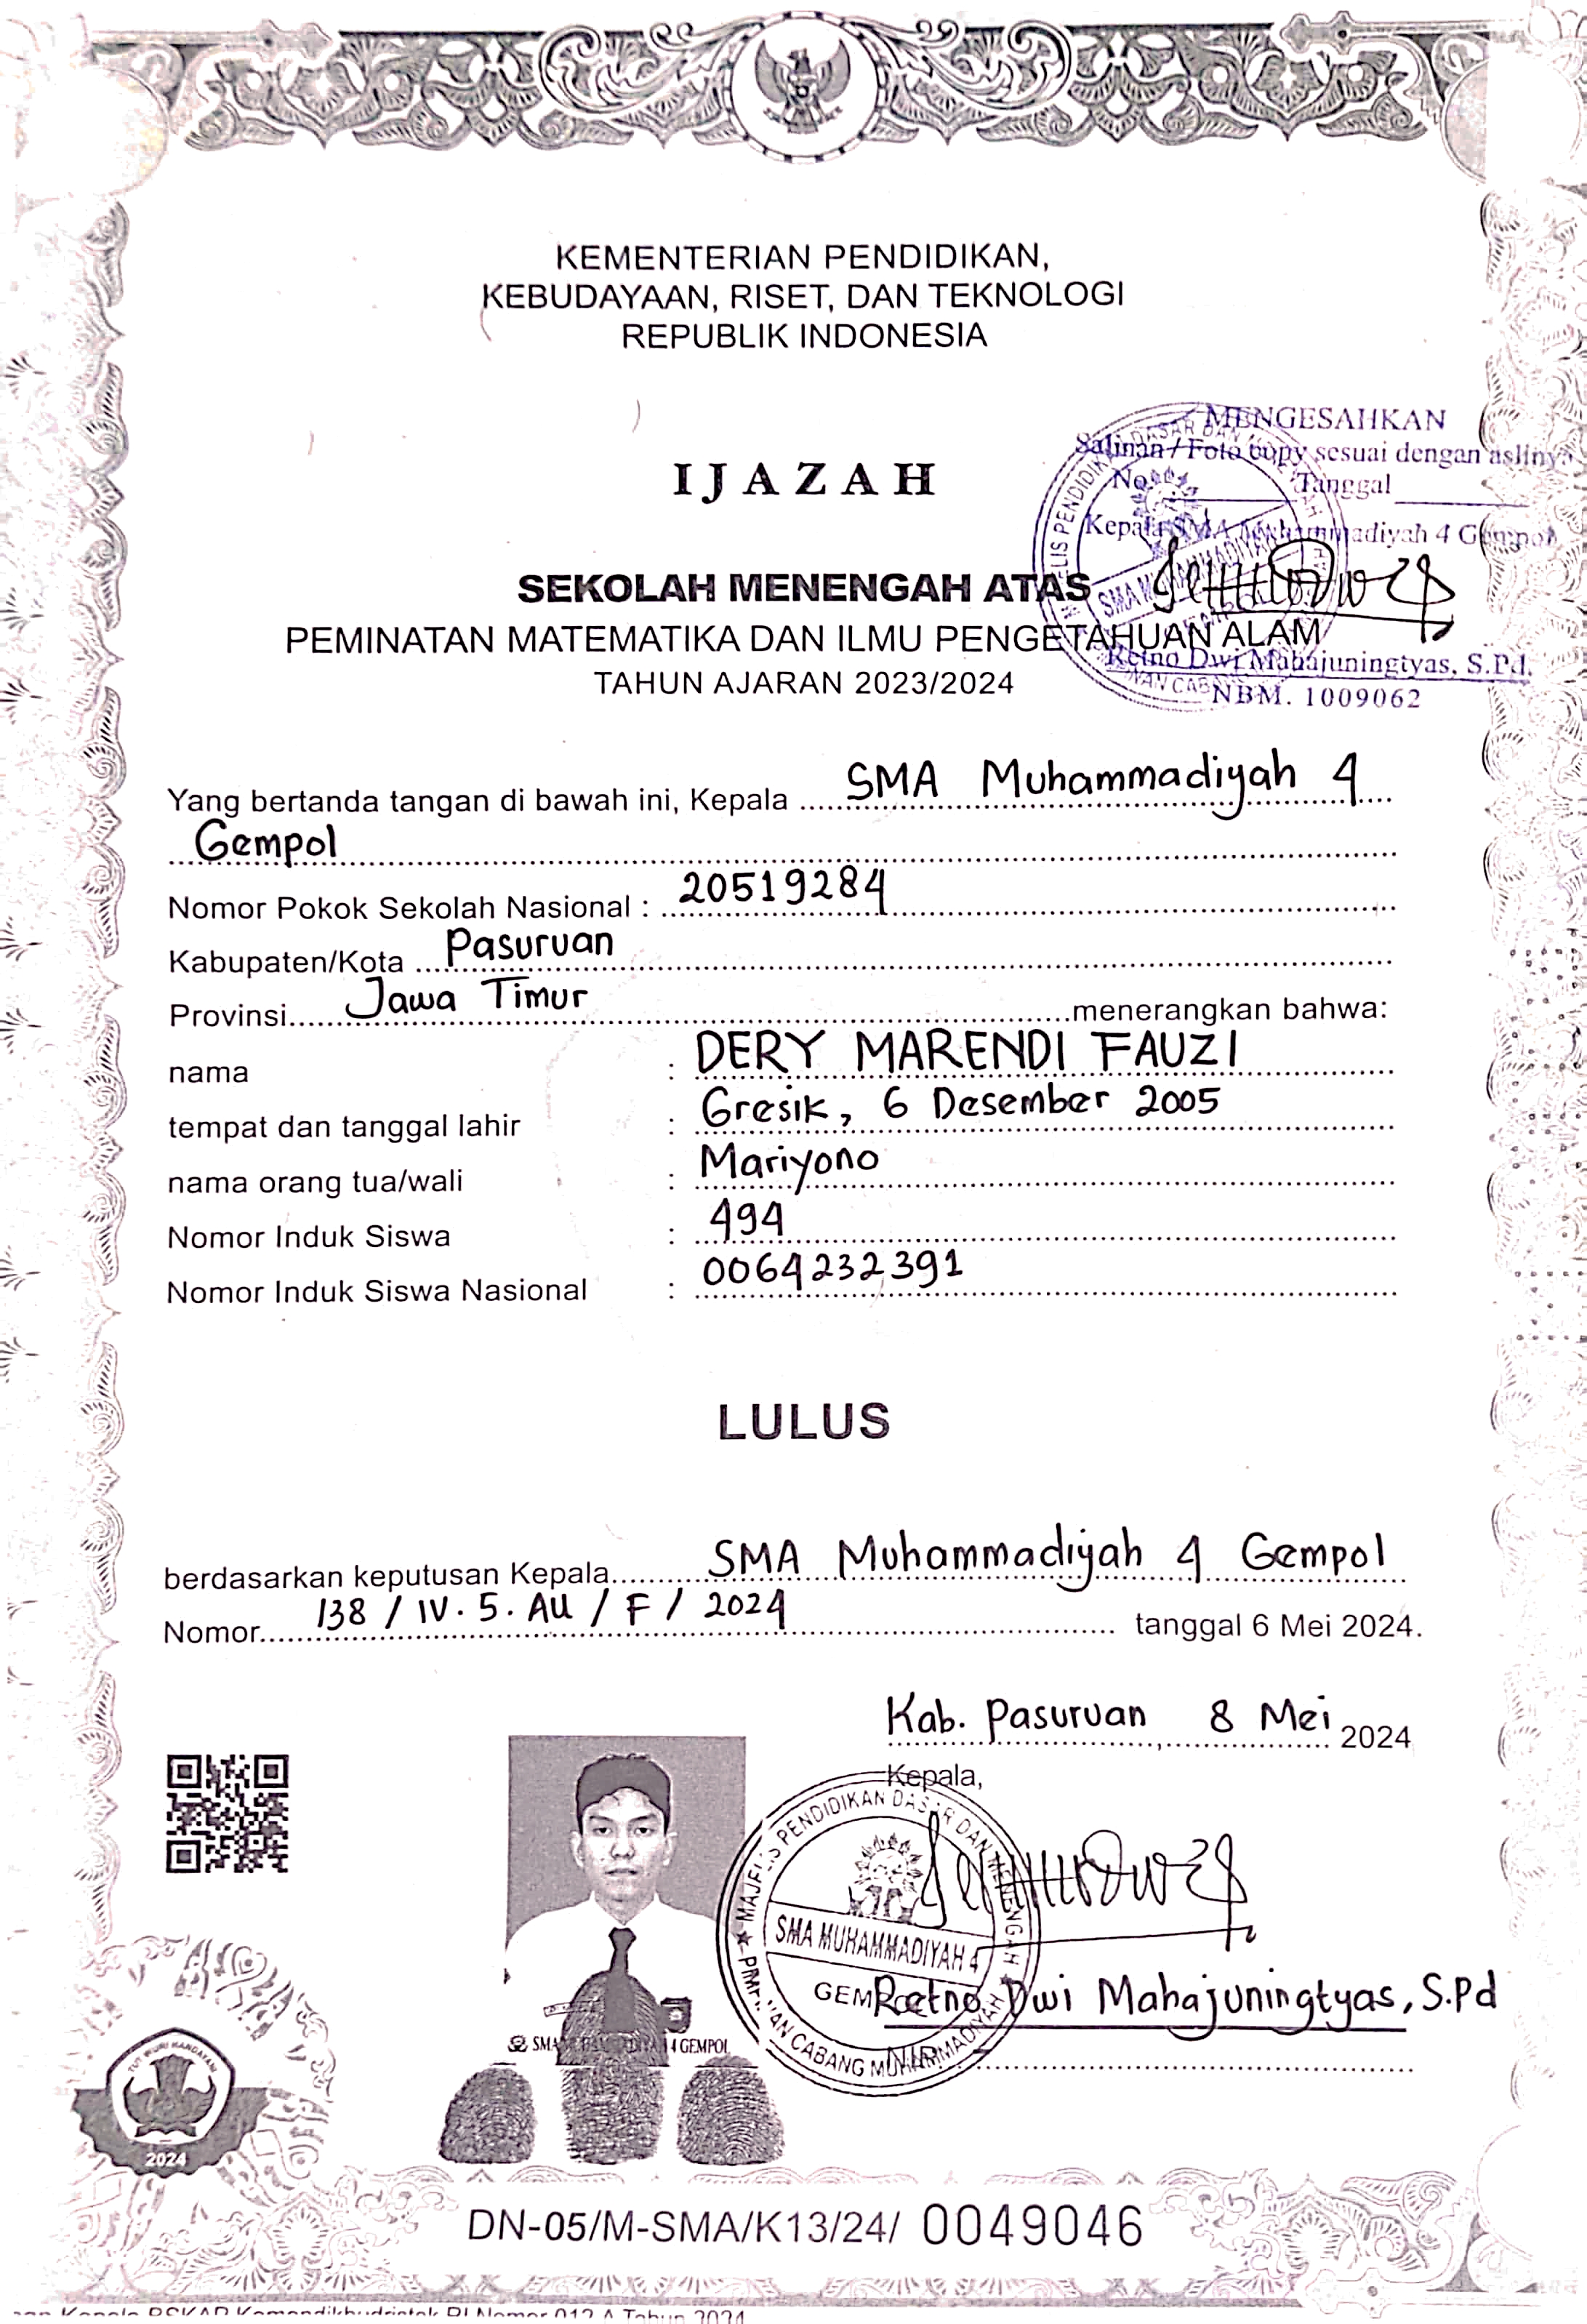 KEMENTERIAN PENDIDIKAN,
KEBUDAYAAN, RISET, DAN TEKNOLOGI
REPUBLIK INDONESIA
IJAZAH
MENGESAHKAN
Salinan / Foto copy sesuai dengan aslinya
No. Tanggal
Kepala SMA Muhammadiyah 4 Gempol
Retno Dwi Mahajuningtyas, S.Pd.
NBM. 1009062
SEKOLAH MENENGAH ATAS
PEMINATAN MATEMATIKA DAN ILMU PENGETAHUAN ALAM
TAHUN AJARAN 2023/2024
Yang bertanda tangan di bawah ini, Kepala SMA Muhammadiyah 4
Gempol
Nomor Pokok Sekolah Nasional : 20519284
Kabupaten/Kota Pasuruan
Provinsi Jawa Timur menerangkan bahwa:
nama : DERY MARENDI FAUZI
tempat dan tanggal lahir : Gresik, 6 Desember 2005
nama orang tua/wali : Mariyono
Nomor Induk Siswa : 494
Nomor Induk Siswa Nasional : 0064232391
LULUS
berdasarkan keputusan Kepala SMA Muhammadiyah 4 Gempol
Nomor 138 / IV.5.AU / F / 2024 tanggal 6 Mei 2024.
Kab. Pasuruan, 8 Mei 2024
Kepala,
MAJELIS PENDIDIKAN DASAR DAN MENENGAH
SMA MUHAMMADIYAH 4
GEMPOL
PIMPINAN CABANG MUHAMMADIYAH
Retno Dwi Mahajuningtyas, S.Pd
NIP.
SMA MUHAMMADIYAH 4 GEMPOL
TUT WURI HANDAYANI
2024
DN-05/M-SMA/K13/24/ 0049046
Kepala BSKAP Kemendikbudristek RI Nomor 012 A Tahun 2024